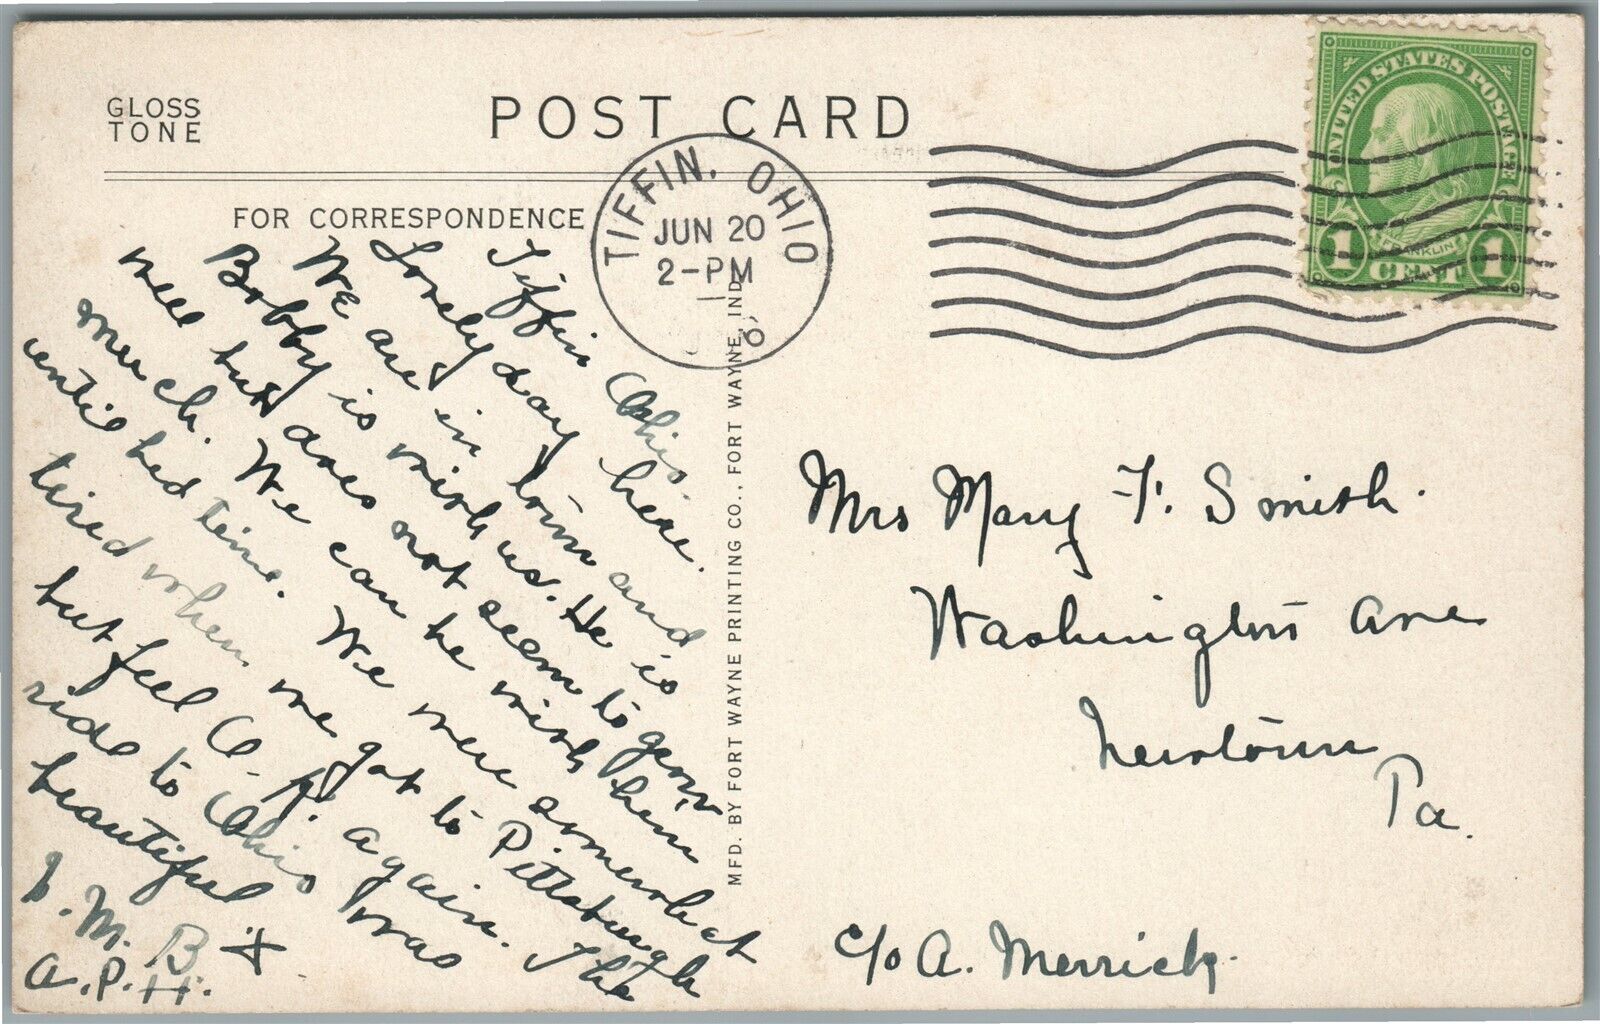 GLOSS
TONE
POST CARD
FOR CORRESPONDENCE
TIFFIN, OHIO
JUN 20
2-PM
UNITED STATES POSTAGE
FRANKLIN
1 CENT 1
MFD. BY FORT WAYNE PRINTING CO., FORT WAYNE, IND.
Tiffin Ohio.
Lovely day here.
We are in town and
Bobby is with us. He is
well but does not seem to grow
much. We can be with him
until bed time. We were somewhat
tired when we got to Pittsburgh
but feel O. K. again. The
ride to Ohio was
beautiful
M. B &
A. P. H.
Mrs Mary F. Smith.
Washington Ave
Newtown
Pa.
c/o A. Merrick.